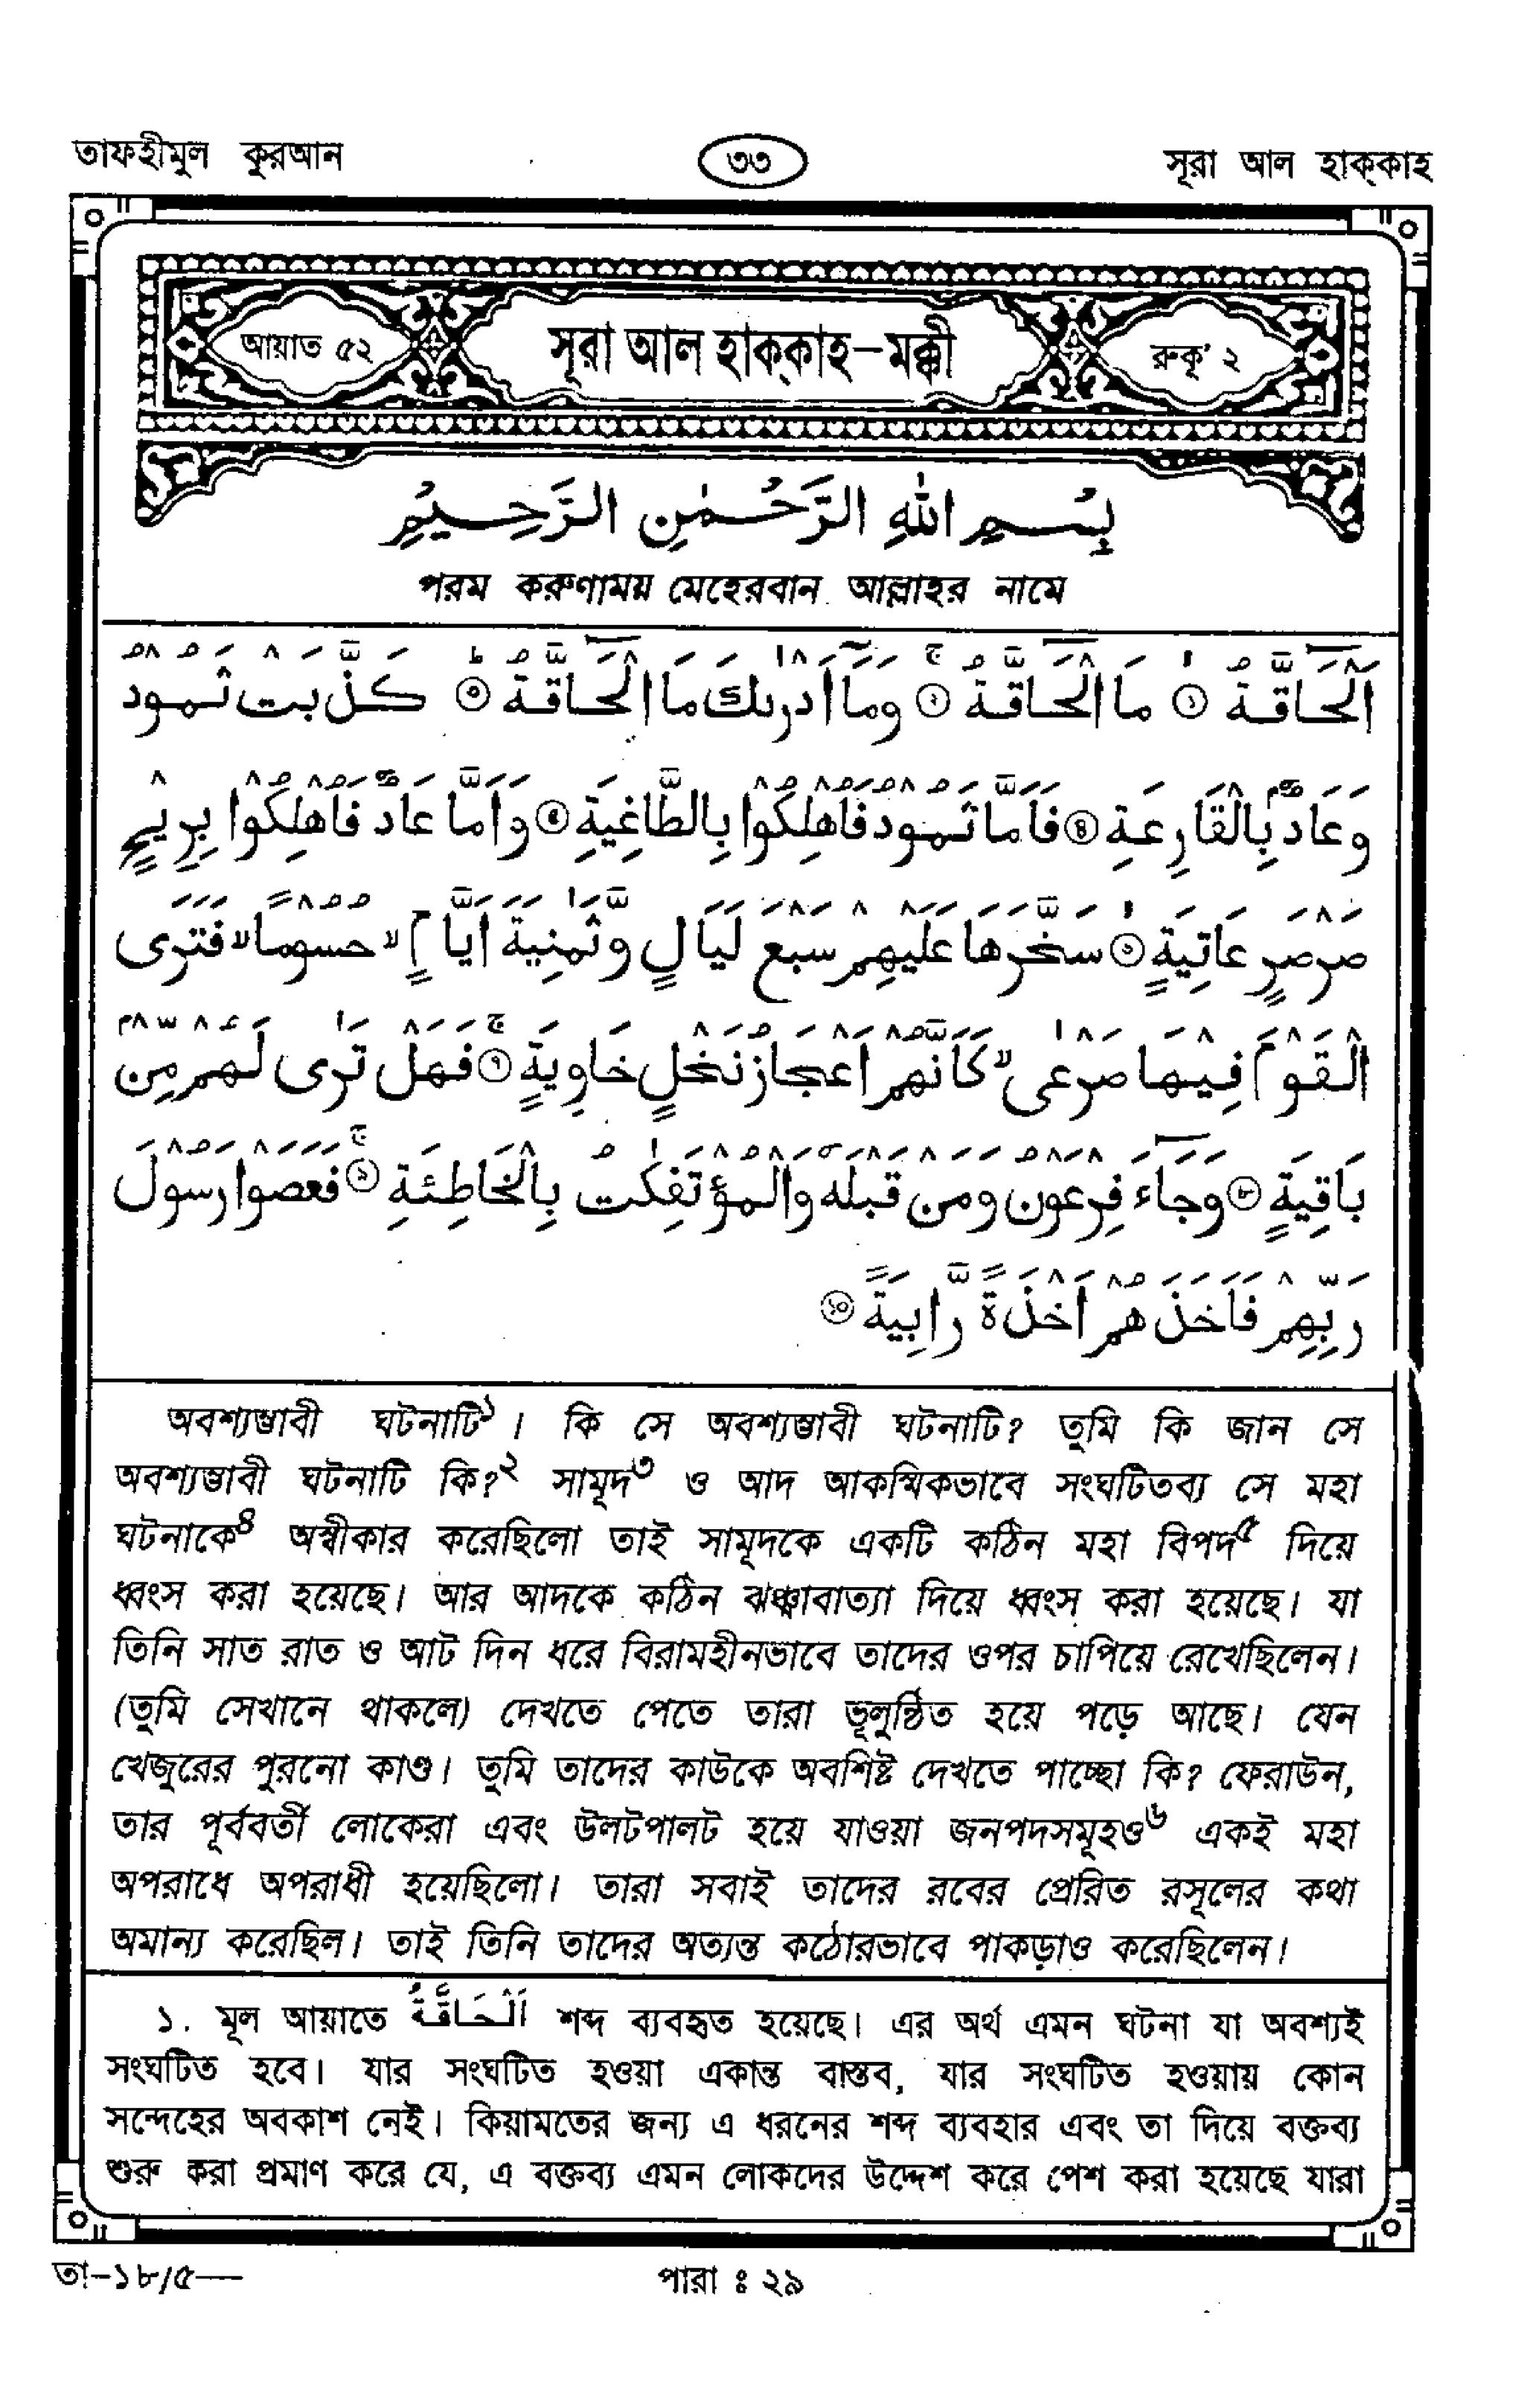 তাফহীমুল কুরআন
৩৩
সূরা আল হাক্‌কাহ
আয়াত ৫২
সূরা আল হাক্‌কাহ–মক্কী
রুকূ' ২
بِسْمِ اللهِ الرَّحْمٰنِ الرَّحِيْمِ
পরম করুণাময় মেহেরবান আল্লাহর নামে
اَلْحَاقَّةُ ۙ① مَا الْحَاقَّةُ ۚ② وَمَآ اَدْرٰىكَ مَا الْحَاقَّةُ ؕ③ كَذَّبَتْ ثَمُوْدُ
وَعَادٌۢ بِالْقَارِعَةِ④ فَاَمَّا ثَمُوْدُ فَاُهْلِكُوْا بِالطَّاغِيَةِ⑤ وَاَمَّا عَادٌ فَاُهْلِكُوْا بِرِيْحٍ
صَرْصَرٍ عَاتِيَةٍ ۙ⑥ سَخَّرَهَا عَلَيْهِمْ سَبْعَ لَيَالٍ وَّثَمٰنِيَةَ اَيَّامٍ ۙ حُسُوْمًا ۙ فَتَرَى
الْقَوْمَ فِيْهَا صَرْعٰى ۙ كَاَنَّهُمْ اَعْجَازُ نَخْلٍ خَاوِيَةٍ ۚ⑦ فَهَلْ تَرٰى لَهُمْ مِّنْۢ
بَاقِيَةٍ⑧ وَجَآءَ فِرْعَوْنُ وَمَنْ قَبْلَهٗ وَالْمُؤْتَفِكٰتُ بِالْخَاطِئَةِ ۚ⑨ فَعَصَوْا رَسُوْلَ
رَبِّهِمْ فَاَخَذَهُمْ اَخْذَةً رَّابِيَةً⑩
অবশ্যম্ভাবী ঘটনাটি১। কি সে অবশ্যম্ভাবী ঘটনাটি? তুমি কি জান সে
অবশ্যম্ভাবী ঘটনাটি কি?২ সামূদ৩ ও আদ আকস্মিকভাবে সংঘটিতব্য সে মহা
ঘটনাকে৪ অস্বীকার করেছিলো তাই সামূদকে একটি কঠিন মহা বিপদ৫ দিয়ে
ধ্বংস করা হয়েছে। আর আদকে কঠিন ঝঞ্ঝাবাত্যা দিয়ে ধ্বংস করা হয়েছে। যা
তিনি সাত রাত ও আট দিন ধরে বিরামহীনভাবে তাদের ওপর চাপিয়ে রেখেছিলেন।
(তুমি সেখানে থাকলে) দেখতে পেতে তারা ভূলুণ্ঠিত হয়ে পড়ে আছে। যেন
খেজুরের পুরনো কাণ্ড। তুমি তাদের কাউকে অবশিষ্ট দেখতে পাচ্ছো কি? ফেরাউন,
তার পূর্ববর্তী লোকেরা এবং উলটপালট হয়ে যাওয়া জনপদসমূহও৬ একই মহা
অপরাধে অপরাধী হয়েছিলো। তারা সবাই তাদের রবের প্রেরিত রসূলের কথা
অমান্য করেছিল। তাই তিনি তাদের অত্যন্ত কঠোরভাবে পাকড়াও করেছিলেন।
১. মূল আয়াতে اَلْحَاقَّةُ শব্দ ব্যবহৃত হয়েছে। এর অর্থ এমন ঘটনা যা অবশ্যই
সংঘটিত হবে। যার সংঘটিত হওয়া একান্ত বাস্তব, যার সংঘটিত হওয়ায় কোন
সন্দেহের অবকাশ নেই। কিয়ামতের জন্য এ ধরনের শব্দ ব্যবহার এবং তা দিয়ে বক্তব্য
শুরু করা প্রমাণ করে যে, এ বক্তব্য এমন লোকদের উদ্দেশ করে পেশ করা হয়েছে যারা
তা–১৮/৫—
পারা ঃ ২৯